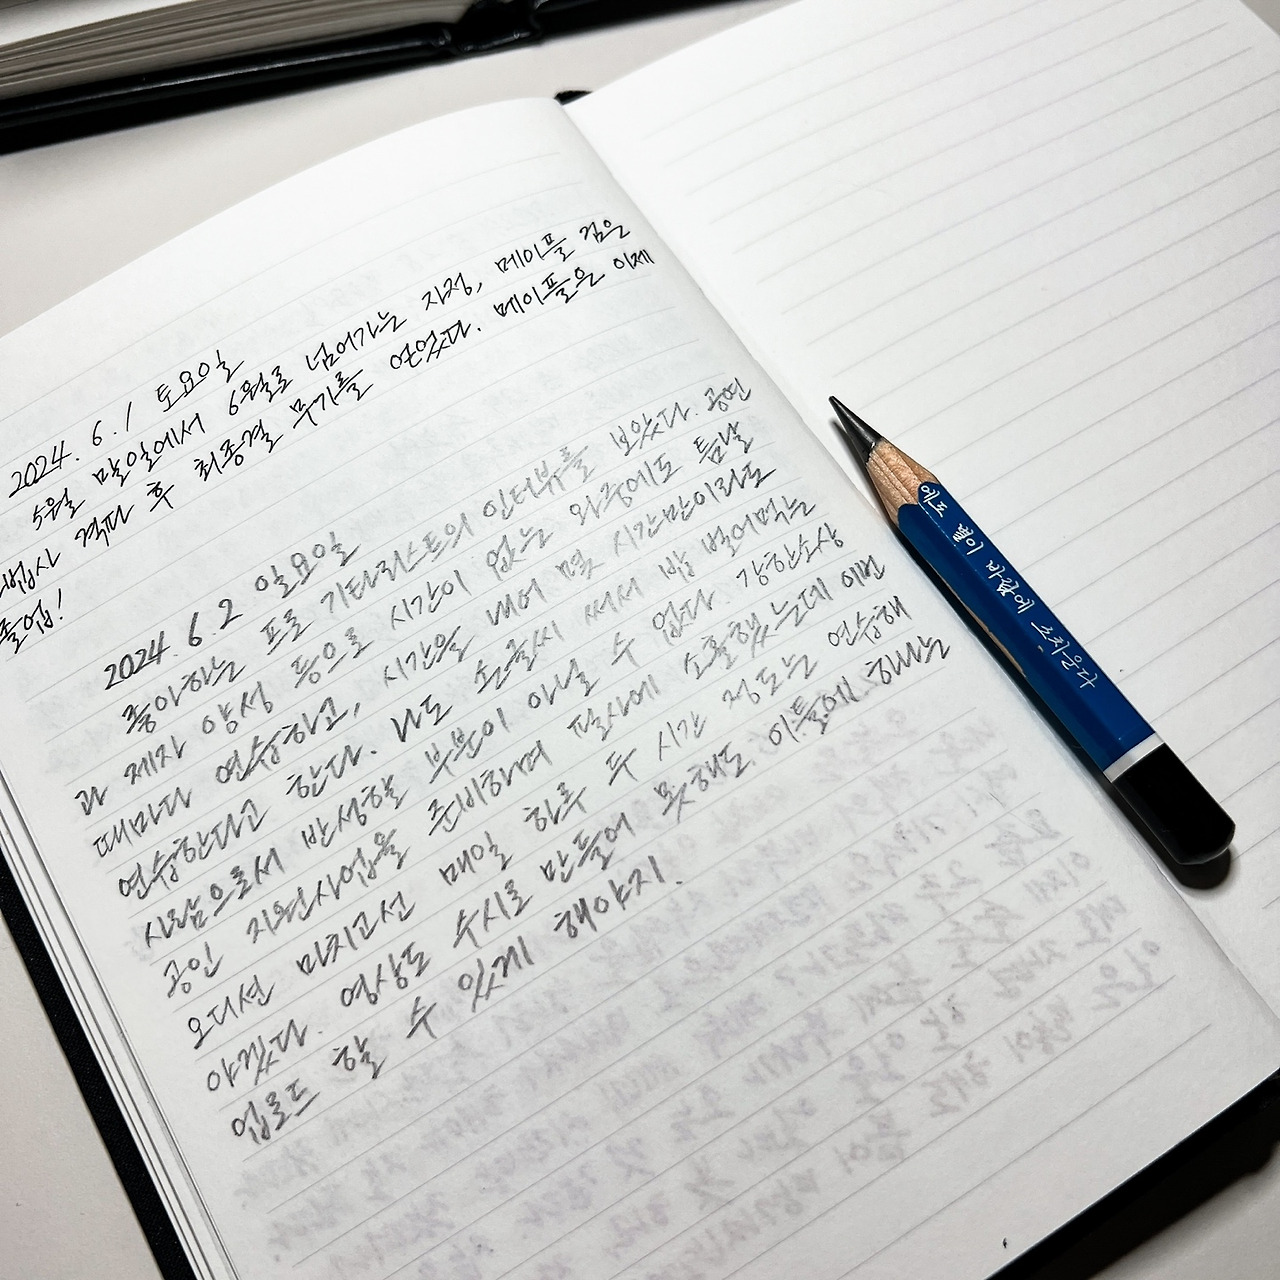 2024. 6. 1 토요일
5월 말일에서 6월로 넘어가는 자정, 메이플 검은
마법사 격파 후 최종결 무기를 얻었다. 메이플은 이제
졸업!
2024. 6. 2 일요일
좋아하는 프로 기타리스트의 인터뷰를 보았다. 공연
과 제자 양성 등으로 시간이 없는 와중에도 틈날
때마다 연습하고, 시간을 내어 몇 시간만이라도
연습한다고 한다. 나도 손글씨 써서 밥 벌어먹는
사람으로서 반성할 부분이 아닐 수 없다. 강한소상
공인 지원사업을 준비하며 필사에 소홀했는데 이번
오디션 마치고선 매일 하루 두 시간 정도는 연습해
야겠다. 영상도 수시로 만들어 못해도 이틀에 하나는
업로드 할 수 있게 해야지.